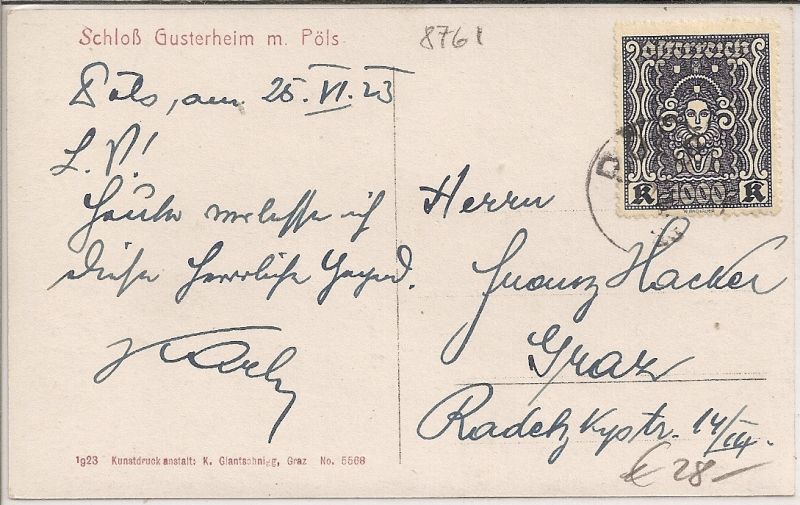 Schloß Gusterheim m. Pöls
8761
Österreich
K 1000 K
Pöls, am 25. VI. 23
L. V!
Heute verlasse ich
diese herrliche Gegend.
Herrn
Franz Hacker
Graz
Radetzkystr. 14/III.
€ 28-
1923 Kunstdruckanstalt: K. Glantschnigg, Graz No. 5568